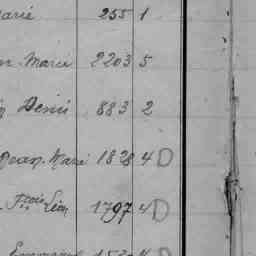 Marie 255 1
Marie 2203 5
Denis 883 2
Jean-Marie 1828 4 D
Fçois Léon 1797 4 D
Emmanuel